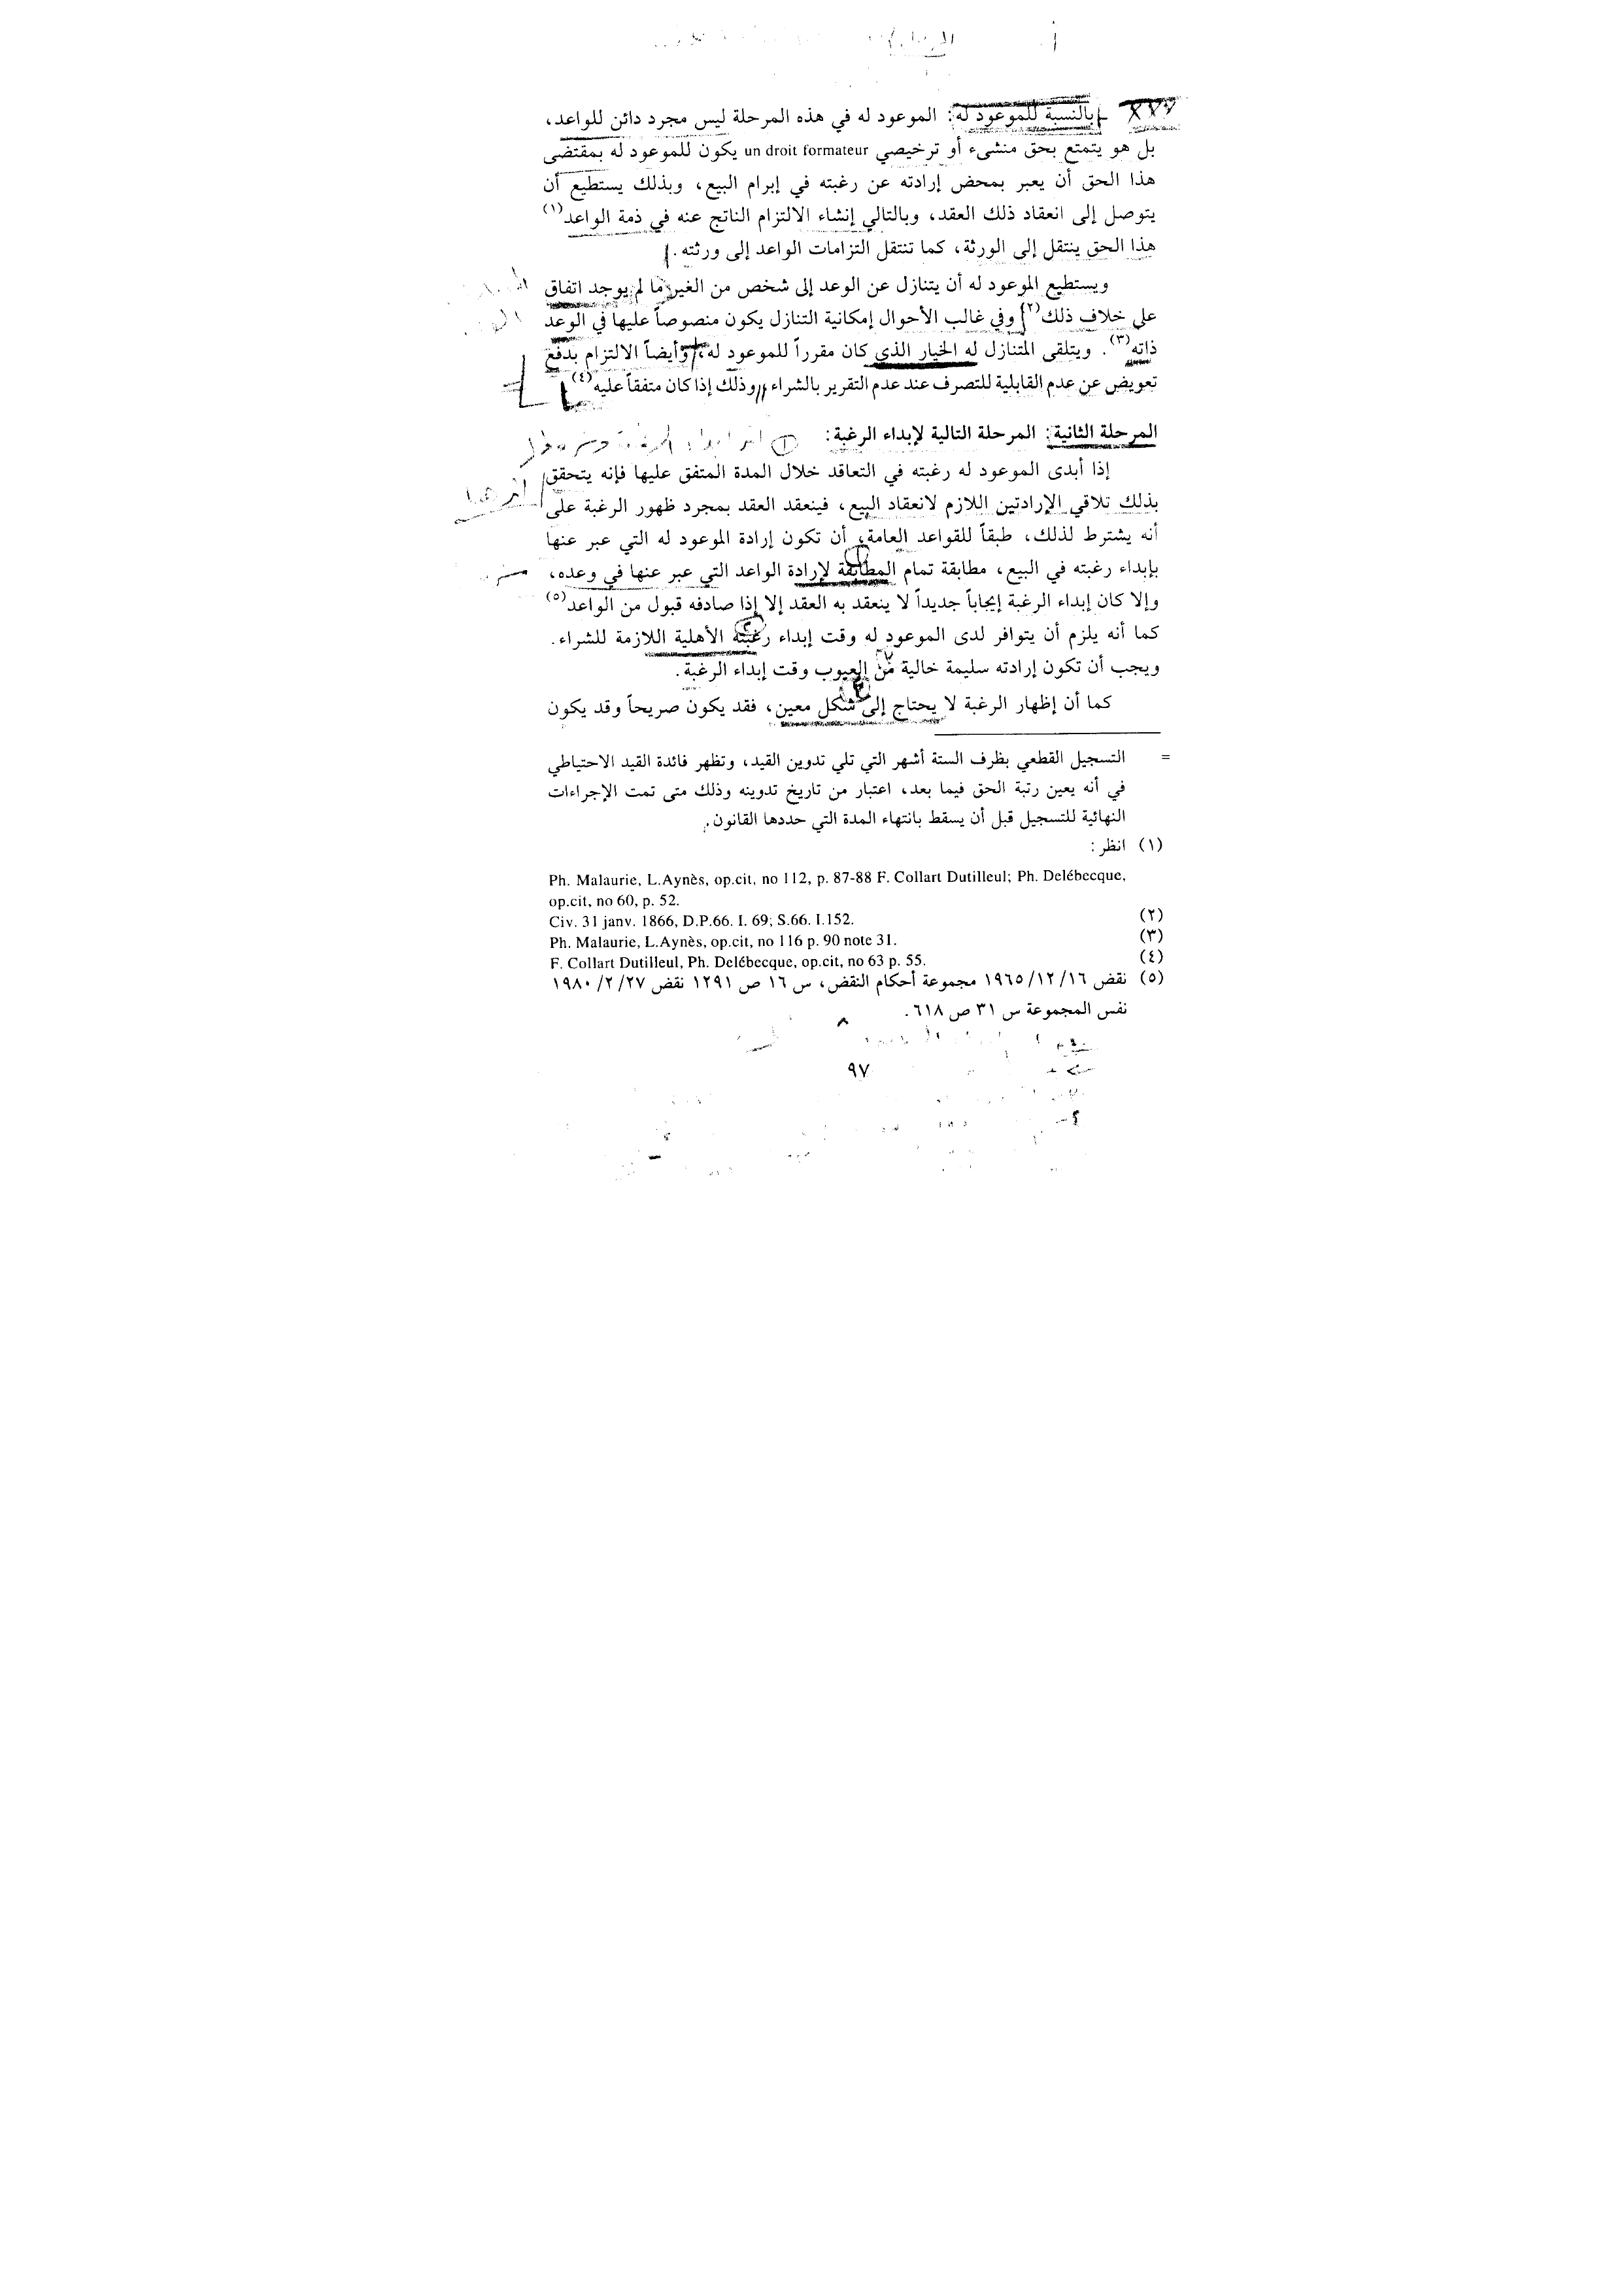 بالنسبة للموعود له: الموعود له في هذه المرحلة ليس مجرد دائن للواعد،
بل هو يتمتع بحق منشىء أو ترخيصي un droit formateur يكون للموعود له بمقتضى
هذا الحق أن يعبر بمحض إرادته عن رغبته في إبرام البيع، وبذلك يستطيع أن
يتوصل إلى انعقاد ذلك العقد، وبالتالي إنشاء الالتزام الناتج عنه في ذمة الواعد(١)
هذا الحق ينتقل إلى الورثة، كما تنتقل التزامات الواعد إلى ورثته.
ويستطيع الموعود له أن يتنازل عن الوعد إلى شخص من الغير ما لم يوجد اتفاق
على خلاف ذلك(٢) وفي غالب الأحوال إمكانية التنازل يكون منصوصاً عليها في الوعد
ذاته(٣). ويتلقى المتنازل له الخيار الذي كان مقرراً للموعود له، وأيضاً الالتزام بدفع
تعويض عن عدم القابلية للتصرف عند عدم التقرير بالشراء وذلك إذا كان متفقاً عليه(٤)
المرحلة الثانية: المرحلة التالية لإبداء الرغبة:
إذا أبدى الموعود له رغبته في التعاقد خلال المدة المتفق عليها فإنه يتحقق
بذلك تلاقي الإرادتين اللازم لانعقاد البيع، فينعقد العقد بمجرد ظهور الرغبة على
أنه يشترط لذلك، طبقاً للقواعد العامة، أن تكون إرادة الموعود له التي عبر عنها
بإبداء رغبته في البيع، مطابقة تمام المطابقة لإرادة الواعد التي عبر عنها في وعده،
وإلا كان إبداء الرغبة إيجاباً جديداً لا ينعقد به العقد إلا إذا صادفه قبول من الواعد(٥)
كما أنه يلزم أن يتوافر لدى الموعود له وقت إبداء رغبته الأهلية اللازمة للشراء.
ويجب أن تكون إرادته سليمة خالية من العيوب وقت إبداء الرغبة.
كما أن إظهار الرغبة لا يحتاج إلى شكل معين، فقد يكون صريحاً وقد يكون
= التسجيل القطعي بظرف الستة أشهر التي تلي تدوين القيد، وتظهر فائدة القيد الاحتياطي
في أنه يعين رتبة الحق فيما بعد، اعتبار من تاريخ تدوينه وذلك متى تمت الإجراءات
النهائية للتسجيل قبل أن يسقط بانتهاء المدة التي حددها القانون.
(١) انظر:
Ph. Malaurie, L.Aynès, op.cit, no 112, p. 87-88 F. Collart Dutilleul; Ph. Delébecque,
op.cit, no 60, p. 52.
(٢) Civ. 31 janv. 1866, D.P.66. I. 69; S.66. I.152.
(٣) Ph. Malaurie, L.Aynès, op.cit, no 116 p. 90 note 31.
(٤) F. Collart Dutilleul, Ph. Delébecque, op.cit, no 63 p. 55.
(٥) نقض ١٦/ ١٢/ ١٩٦٥ مجموعة أحكام النقض، س ١٦ ص ١٢٩١ نقض ٢٧/ ٢/ ١٩٨٠
نفس المجموعة س ٣١ ص ٦١٨.
٩٧